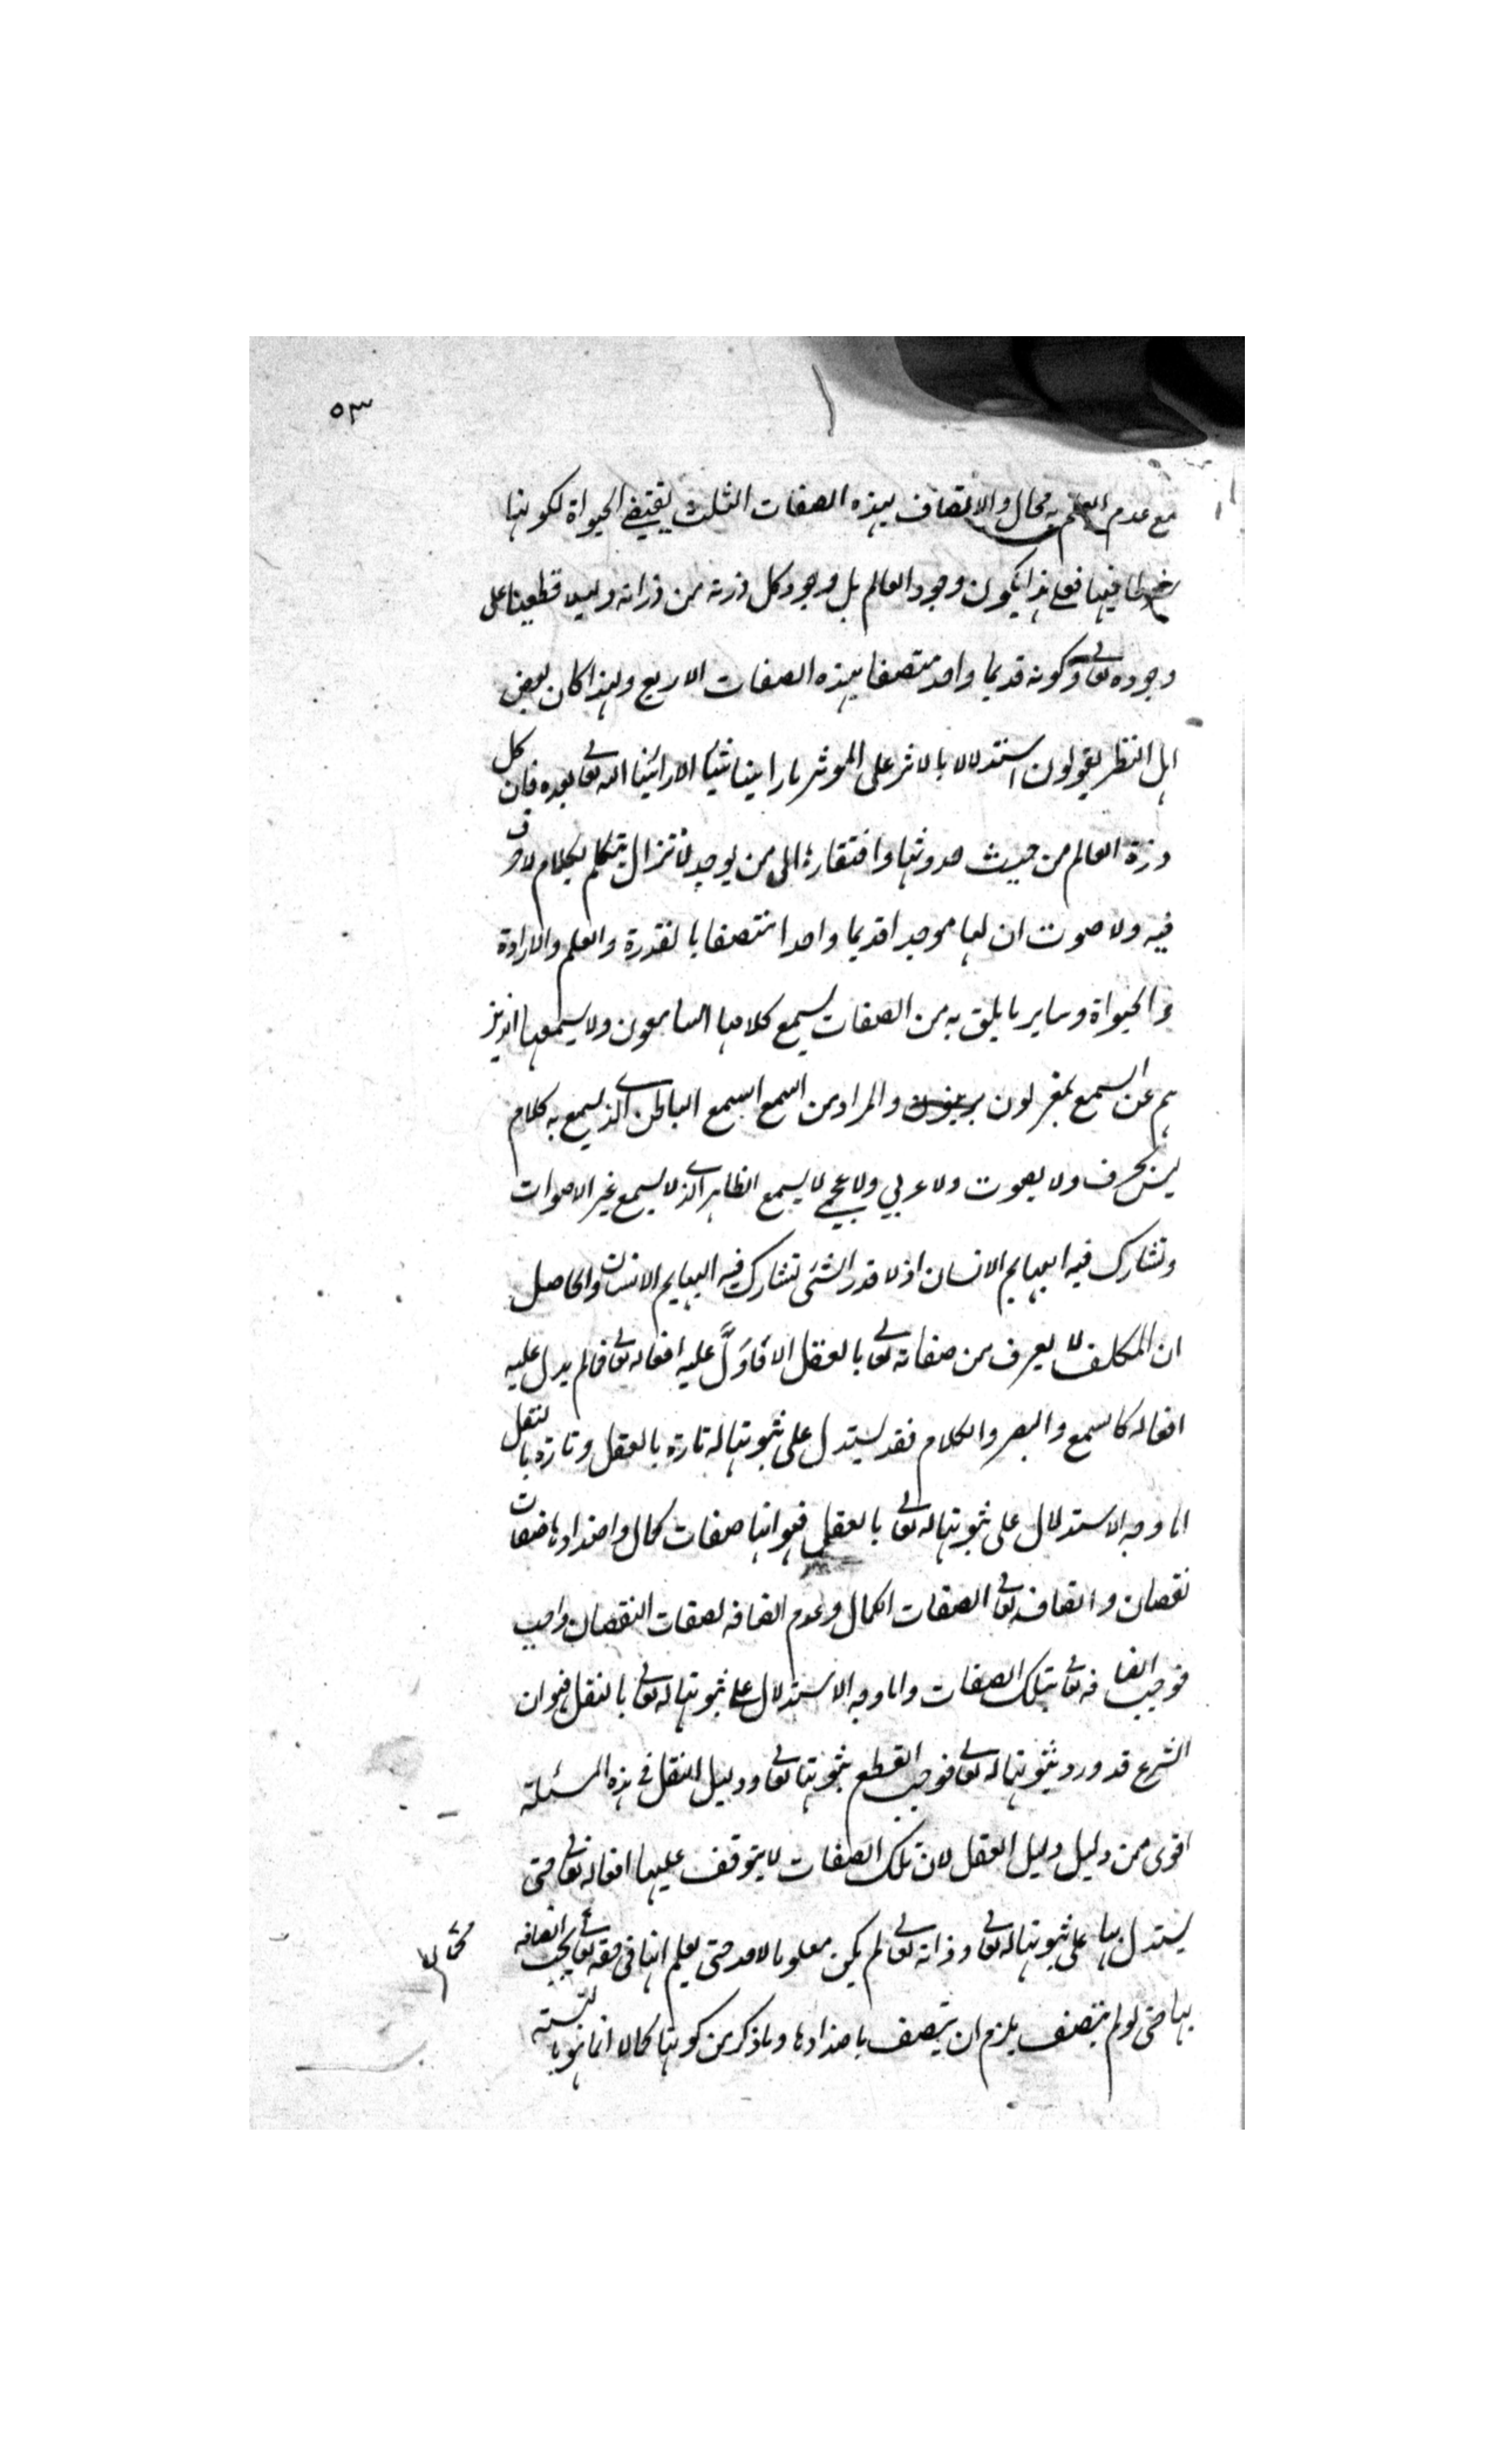 ٥٣
مع عدم العلم به محال والاتصاف بهذه الصفات الثلث يقتضى الحيواة لكونها
شرطا فيها فعلى هذا يكون وجود العالم بل وجود كل ذرة من ذراته دليلا قطعيا على
وجوده تعالى وكونه قديما واحد متصفا بهذه الصفات الاربع ولهذا كان بعض
اهل النظر يقولون استدلالا بالاثر على الموثر ما راينا شيئا الا راينا الله تعالى بعده فان كل
ذرة العالم من حيث حدوثها وافتقارها الى من يوجد لا تزال يتكلم بكلام لا حرف
فيه ولا صوت ان لها موجدا قديما واحدا متصفا بالقدرة والعلم والارادة
والحيواة وساير ما يليق به من الصفات يسمع كلامها السامعون ولا يسمعها الذين
هم عن السمع لمعزلون والمراد من السمع السمع الباطن الذي يسمع به كلام
ليس بحرف ولا بصوت ولا عربي ولا عجمي لا يسمع الظاهر الذي لا يسمع غير الاصوات
وتشارك فيه البهايم الانسان اذ لا قدر لشئ تشارك فيه البهايم الانسان والحاصل
ان المكلف لا يعرف من صفاته تعالى بالعقل الا ما دَلَّ عليه افعاله تعالى فما لم يدل عليه
افعاله كالسمع والبصر والكلام فقد يستدل على ثبوتها له تارة بالعقل وتارة بالنقل
اما وجه الاستدلال على ثبوتها له تعالى بالعقل فهو انها صفات كمال واضدادها صفات
نقصان واتصافه تعالى الصفات الكمال وعدم اتصافه لصفات النقصان واجب
فوجب اتصافه تعالى بتلك الصفات واما وجه الاستدلال على ثبوتها له تعالى بالنقل فهو ان
الشرع قد ورد بثبوتها له تعالى فوجب القطع بثبوتها تعالى ودليل النقل في هذه المسئلة
اقوى من دليل دليل العقل لان تلك الصفات لا يتوقف عليها افعاله تعالى حتى
يستدل بها على ثبوتها له تعالى وذاته تعالى لم يكن معلوما لاحد حتى يعلم انها في حقه تعالى يجب اتصافه
كمال
بها حتى لو لم يتصف يلزم ان يتصف باضدادها وما ذكر من كونها كمالا انما هو بالنسبة